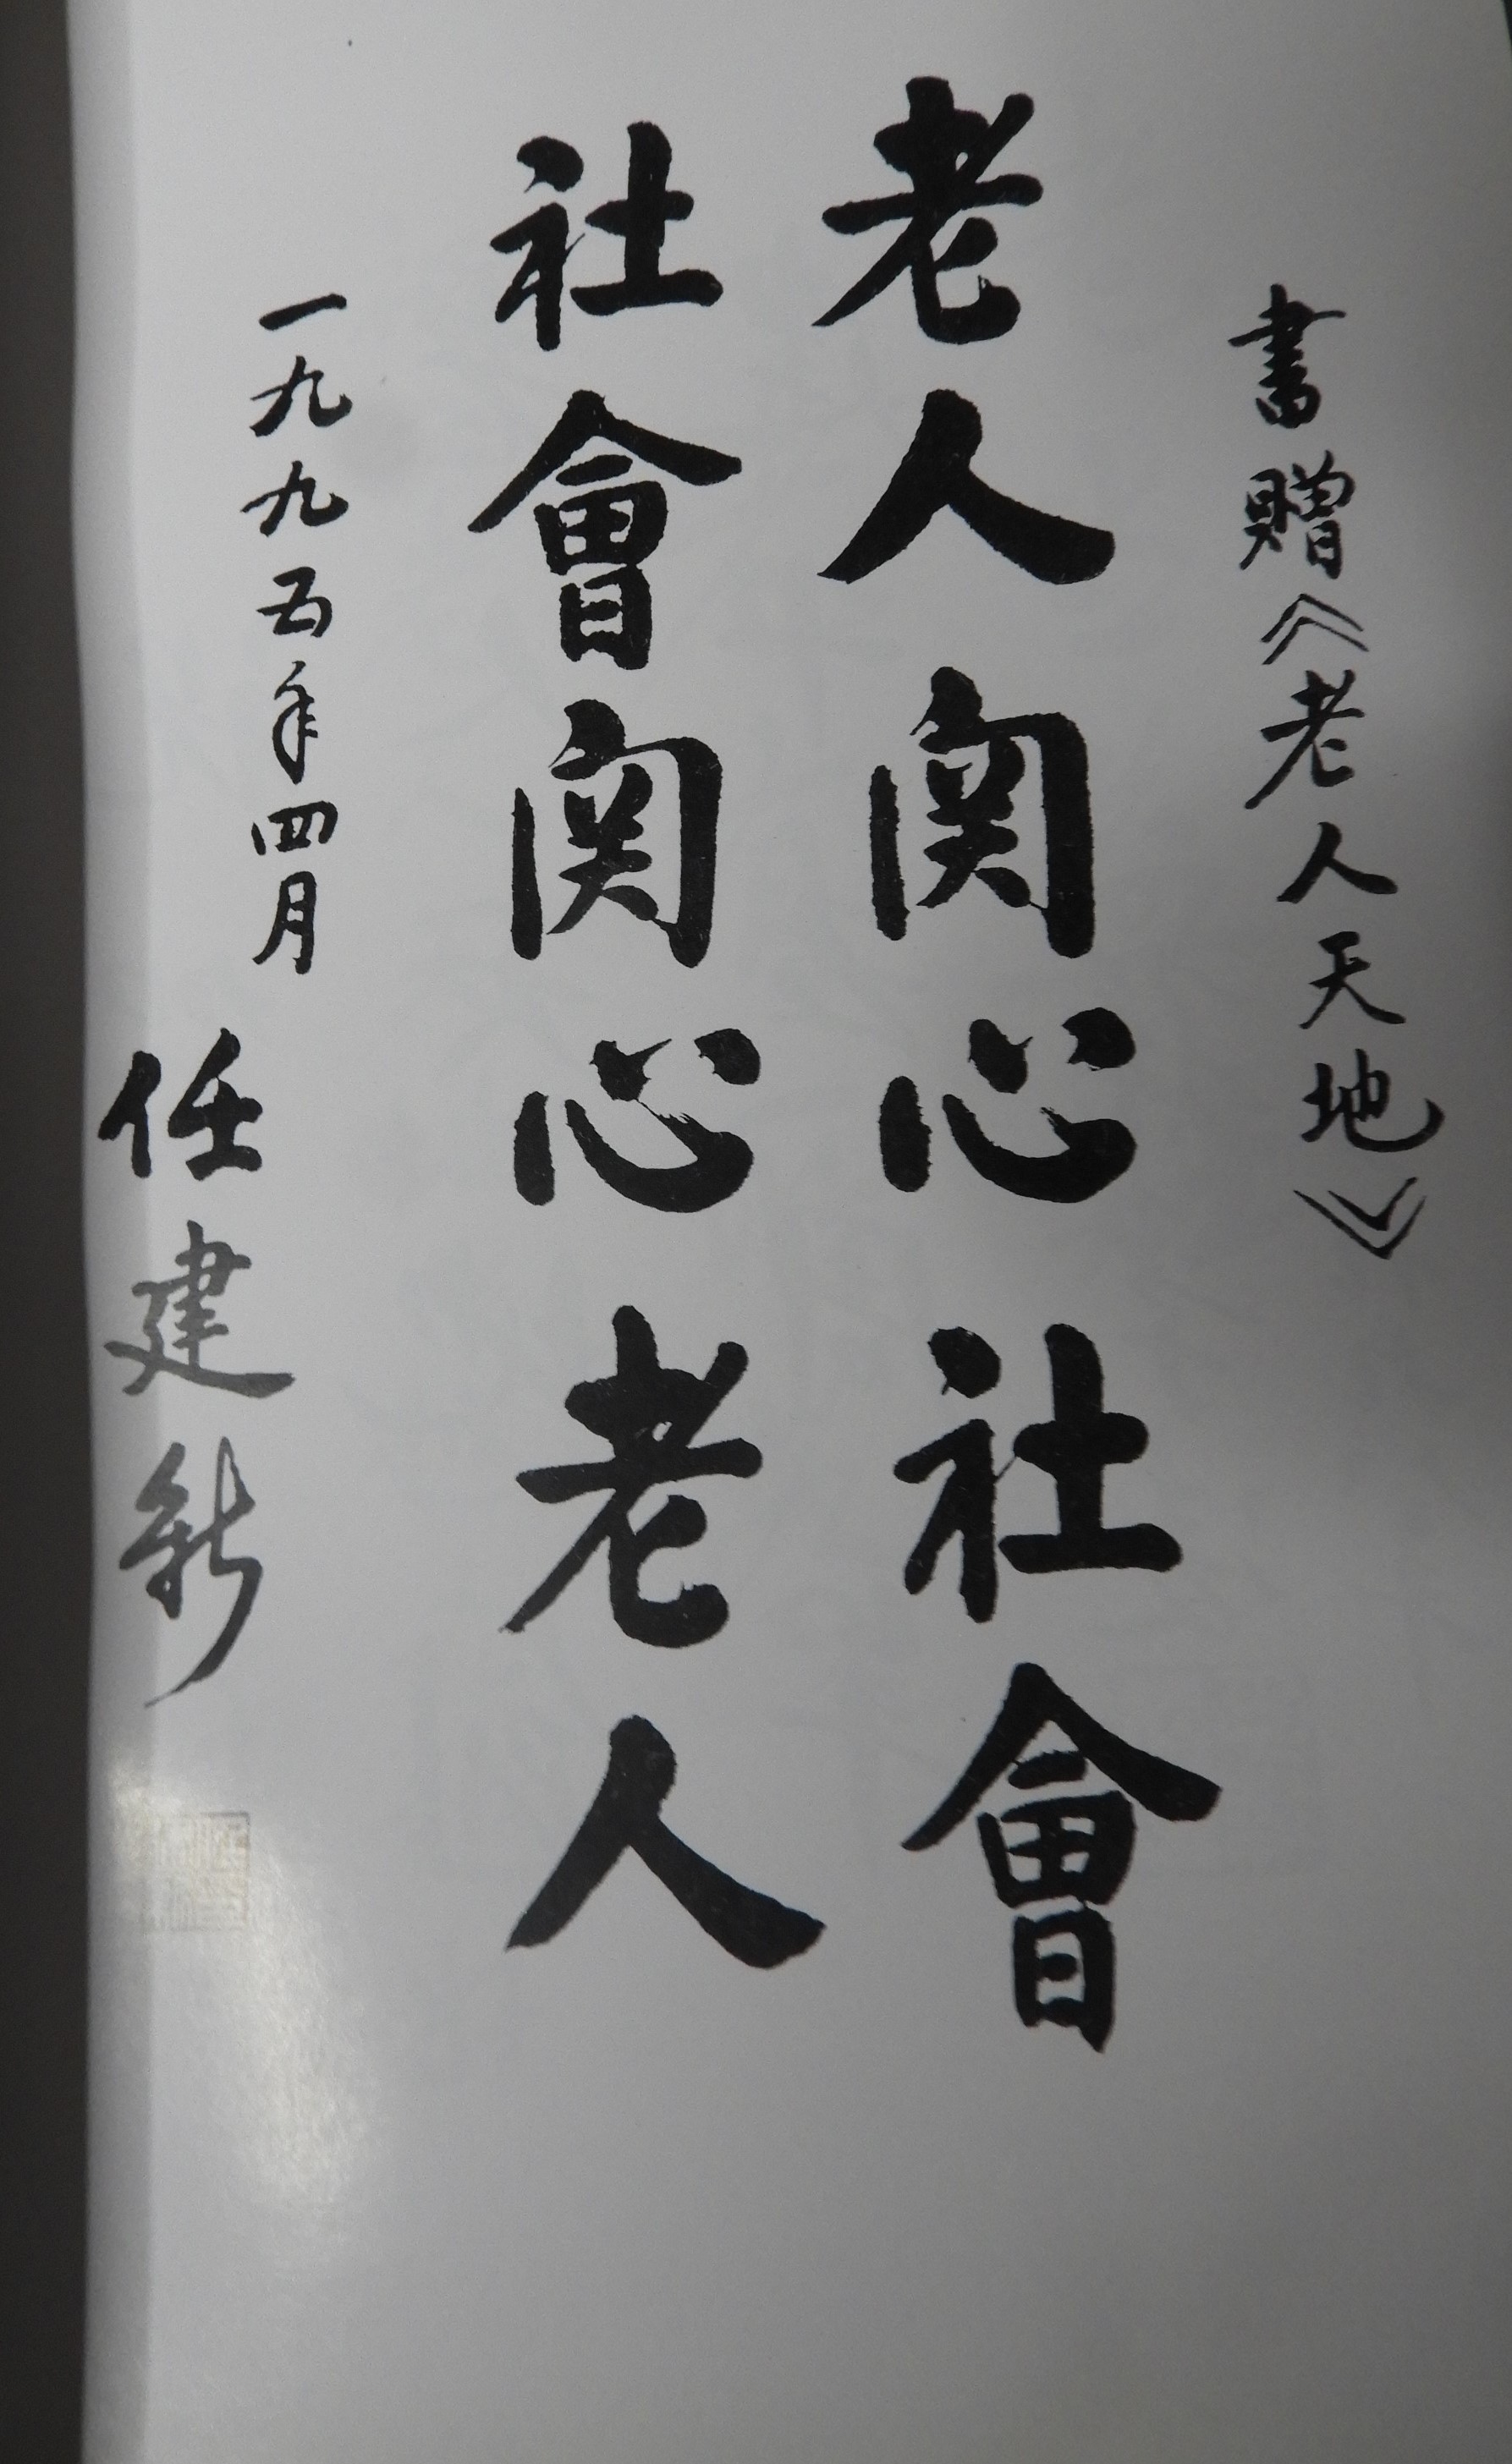 書贈《老人天地》
老人関心社會
社會関心老人
一九九五年四月
任建新